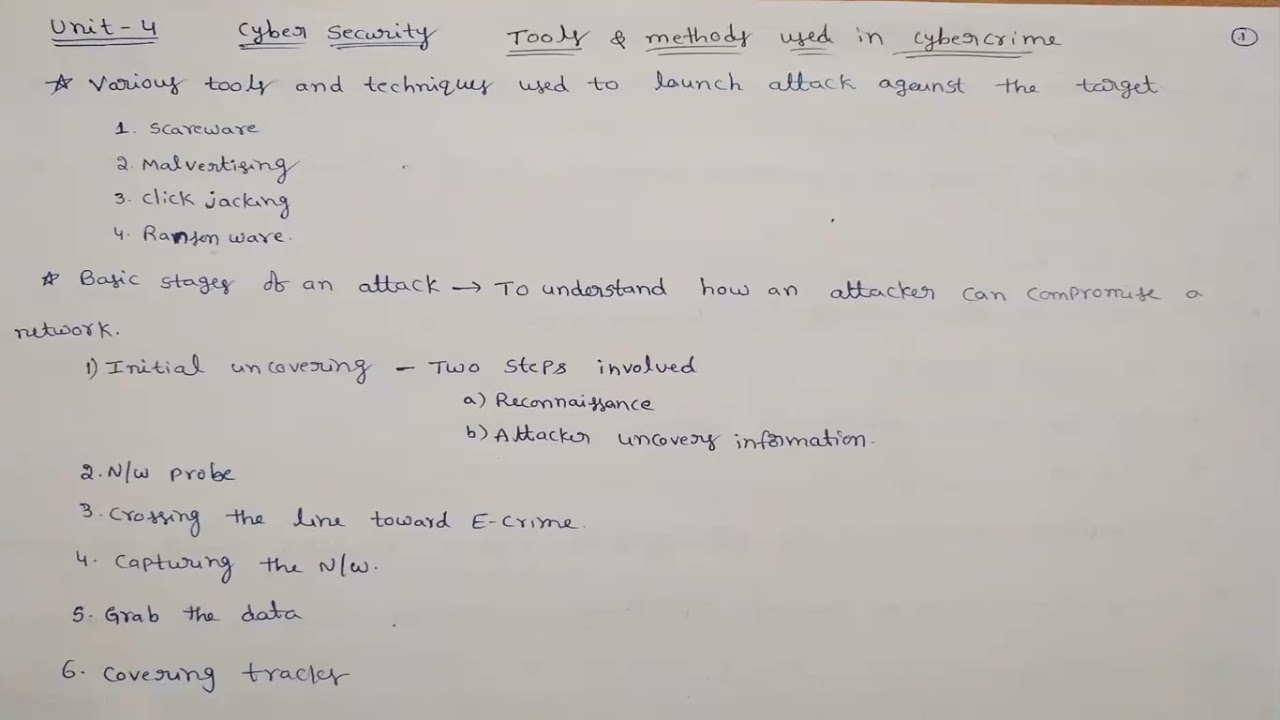 Unit - 4 Cyber Security Tools & methods used in cybercrime 1
☆ Various tools and techniques used to launch attack against the target
1. Scareware
2. Malvertising
3. Click jacking
4. Ransonware.
☆ Basic stages of an attack → To understand how an attacker can compromise a
network.
1) Initial uncovering - Two steps involved
a) Reconnaissance
b) Attacker uncovers information.
2. N/w probe
3. Crossing the line toward E-crime.
4. Capturing the N/w.
5. Grab the data
6. Covering tracks